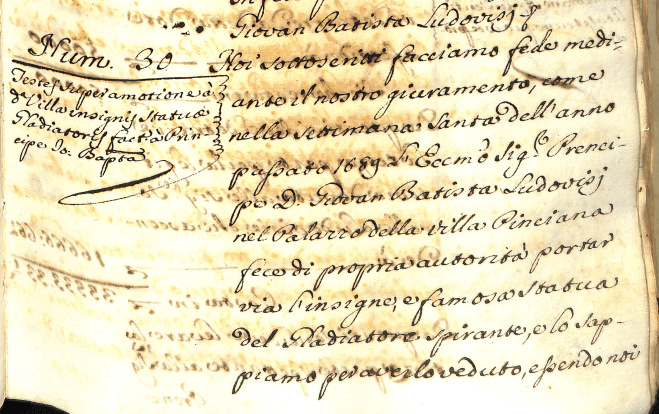 Giovan Batista Ludovisj
Num. 30
Testes super amotione a
d.a Villa insignis statuæ
Gladiatoris facta Prin-
cipe Jo: Bapta
Noi sottoscritti facciamo fede medi-
ante il nostro giuramento, come
nella settimana santa dell'anno
passato 1689 l'Eccmo Sigr Prenci-
pe D. Giovan Batista Ludovisj
nel Palazzo della villa Pinciana
fece di propria autorità portar
via l'insigne, e famosa statua
del Gladiatore spirante, e lo sap-
piamo per averlo veduto, essendo noi